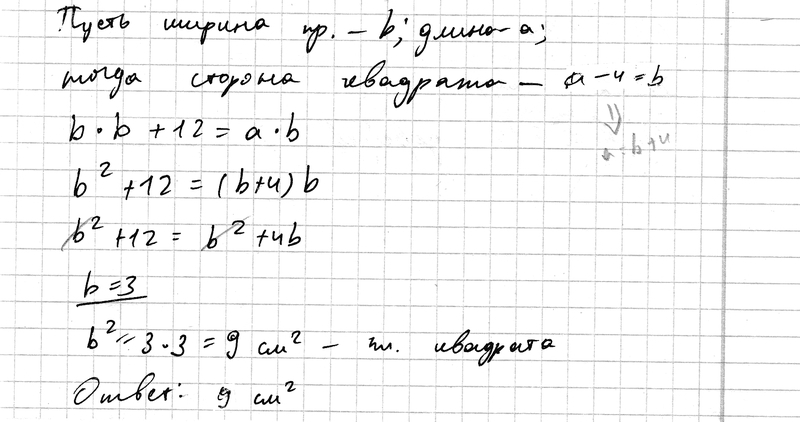 Пусть ширина пр. – b; длина a;
тогда сторона квадрата – a – 4 = b
⇓
a = b + 4
b · b + 12 = a · b
b² + 12 = (b+4) b
b² + 12 = b² + 4b
b = 3
b² = 3 · 3 = 9 см² – пл. квадрата
Ответ: 9 см²